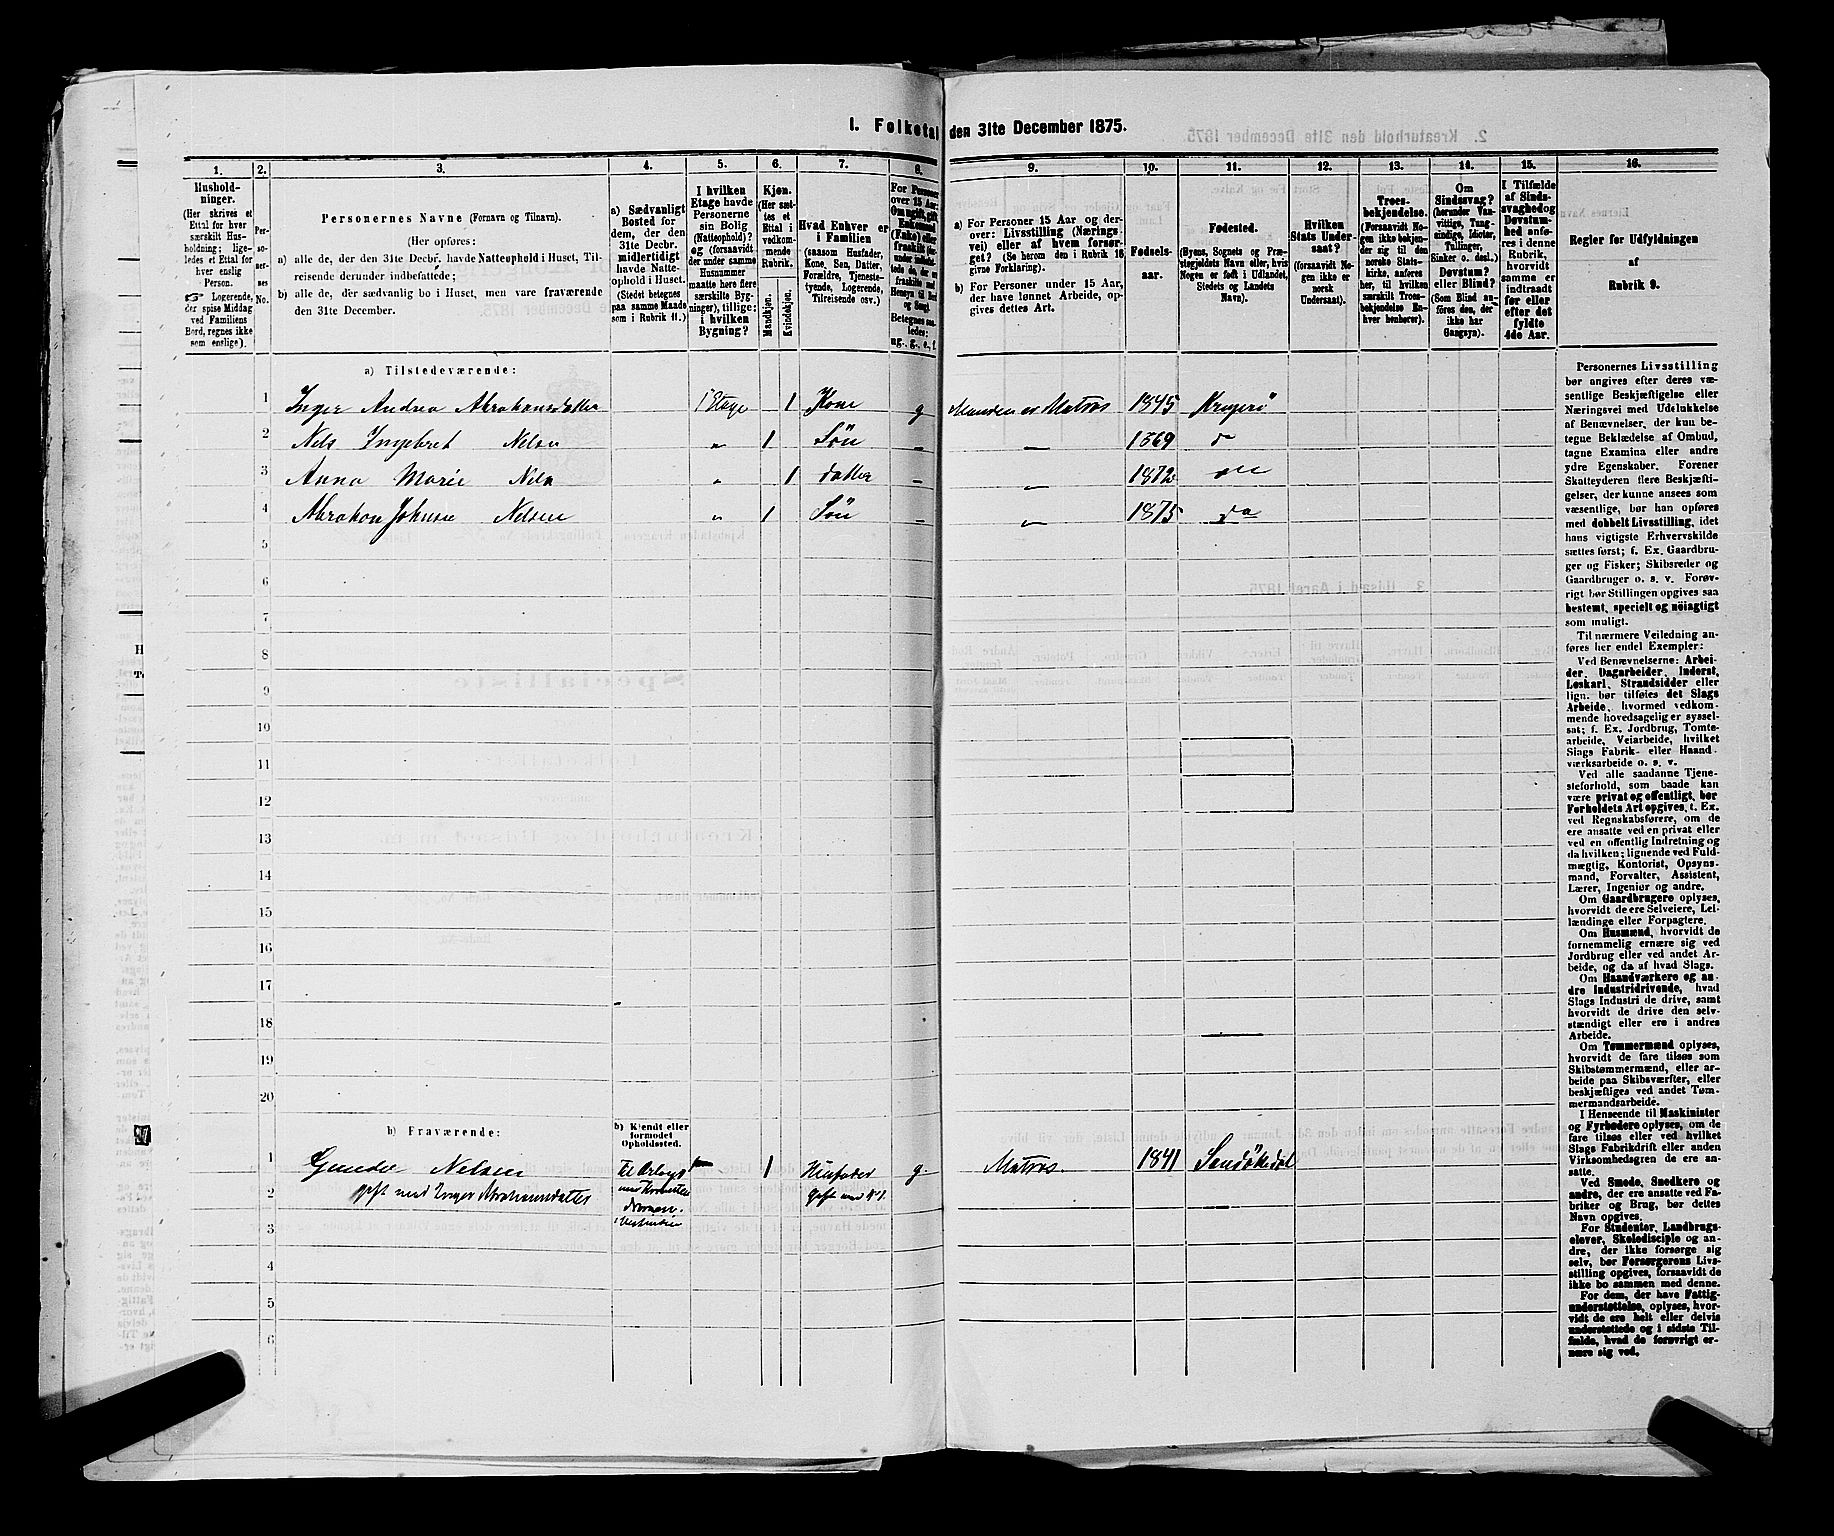 1. Folketal den 31te December 1875.
1. 2. 3. 4. 5. 6. 7. 8. 9. 10. 11. 12. 13. 14. 15. 16.
Husholdninger.
(Her skrives et
Ettal for hver
særskilt Husholdning;
ligeledes et Ettal for
hver enslig
Person.
☞ Logerende,
der spise Middag
ved Familiens
Bord, regnes ikke
som enslige).
Personernes No.
Personernes Navne (Fornavn og Tilnavn).
(Her opføres:
a) alle de, der den 31te Decbr. havde Natteophold i Huset, Tilreisende derunder indbefattede;
b) alle de, der sædvanlig bo i Huset, men vare fraværende
den 31te December.
a) Sædvanligt
Bosted for
dem, der den
31te Decbr.
midlertidigt
havde Natteophold i Huset.
(Stedet betegnes
paa samme Maade
som i Rubrik 11.)
I hvilken
Etage havde
Personerne
sin Bolig
(Natteophold)?
og (forsaavidt
der under samme
Husnummer
maatte høre flere
særskilte Bygninger), tillige:
i hvilken
Bygning?
Kjøn.
(Her sættes et
Ettal i
vedkommende
Rubrik.
Mandkjøn.
Kvindekjøn.
Hvad Enhver er
i Familien
(saasom Husfader,
Kone, Søn, Datter,
Forældre, Tjenestetyende, Logerende,
Tilreisende osv.)
For Personer
over 15 Aar:
Om ugift, gift,
Enkemand
(Enke) eller
fraskilt
Betegnes saaledes:
ug., g., e., f.
a) For Personer 15 Aar og derover: Livsstilling (Næringsvei) eller af hvem forsørget? (Se herom den i Rubrik 16
givne Forklaring).
b) For Personer under 15 Aar,
der have lønnet Arbeide, opgives dettes Art.
Fødselsaar.
Fødested.
(Byens, Sognets og Præstegjeldets Navn eller, hvis
Nogen er født i Udlandet,
Stedets og Landets
Navn).
Hvilken
Stats Undersaat?
(forsaavidt Nogen ikke er
norsk
Undersaat).
Troesbekjendelse.
(Forsaavidt Nogen ikke bekjender sig til den
norske Statskirke, anføres
her, til hvilket
særskilt Troesbekjendelse Enhver henhører).
Om
Sindssvag?
(herunder Vanvittige, Tungsindige, Idioter,
Tullinger,
Sinker o. desl.)
Døvstum?
eller Blind?
(Som Blind anføres den, der
ikke har
Gangsyn).
I Tilfælde
af Sindssvaghed og
Døvstumhed anføres i denne
Rubrik,
hvorvidt
samme er
indtraadt
før eller
efter det
fyldte
4de Aar.
Regler for Udfyldningen
af
Rubrik 9.
a) Tilstedeværende:
1 Inger Andrea Abrahamsdatter 1 Etage 1 Kone g Manden er Matros 1845 Kragerø
2 Nels Ingebret Nelsen „ 1 Søn – „ 1869 do
3 Anna Marie Nelsen „ 1 datter – „ 1872 do
4 Abraham Johnsen Nelsen „ 1 Søn – „ 1875 do
5
6
7
8
9
10
11
12
13
14
15
16
17
18
19
20
b) Fraværende:
b) Kjendt eller
formodet
Opholdssted.
1 Nelsen 1 Husfader g. Matros. 1841 Sandøkedal
2 gift med Inger Abrahamsdatter gift med N 1.
3
4
5
6
Personernes Livsstilling
bør angives efter deres væsentlige Beskjæftigelse eller
Næringsvei med Udelukkelse
af Benævnelser, der kun betegne Beklædelse af Ombud,
tagne Examina eller andre
ydre Egenskaber. Forener
Skatteyderen flere Beskjæftigelser, der kunne ansees som
væsentlige, bør han opføres
med dobbelt Livsstilling, idet
hans vigtigste Erhvervskilde
sættes først; f. Ex. Gaardbruger og Fisker; Skibsreder og
Gaardbruger o. s. v. Forøvrigt bør Stillingen opgives saa
bestemt, specielt og nöiagtigt
som muligt.
Til nærmere Veiledning anføres her endel Exempler:
Ved Benævnelserne: Arbeider, Dagarbeider, Inderst,
Løskarl, Strandsidder eller
lign. bør tilføies det Slags
Arbeide, hvormed vedkommende hovedsagelig er sysselsat; f. Ex. Jordbrug, Tomtearbeide, Veiarbeide, hvilket
Slags Fabrik- eller Haandværksarbeide o. s. v.
Ved alle saadanne Tjenesteforhold, som baade kan
være privat og offentligt, bør
Forholdets Art opgives, t. Ex.
ved Regnskabsførere, om de
ere ansatte ved en privat eller
ved en offentlig Indretning og
da hvilken; lignende ved Fuldmægtig, Kontorist, Opsynsmand, Forvalter, Assistent,
Lærer, Ingeniør og andre.
Om Gaardbrugere oplyses,
hvorvidt de ere Selveiere, Leilændinge eller Forpagtere.
Om Husmænd, hvorvidt de
fornemmelig ernære sig ved
Jordbrug eller ved andet Arbeide, og da af hvad Slags.
Om Haandværkere og andre Industridrivende, hvad
Slags Industri de drive, samt
hvorvidt de drive den selvstændigt eller ere i andres
Arbeide.
Om Tømmermænd oplyses,
hvorvidt de fare tilsøs som
Skibstømmermænd, eller arbeide paa Skibsværfter, eller
beskjæftiges ved andet Tømmermandsarbeide.
I Henseende til Maskinister
og Fyrbødere oplyses, om de
fare tilsøs eller ved hvilket
Slags Fabrikdrift eller anden
Virksomhedsgren de ere ansatte.
Ved Smede, Snedkere og
andre, der ere ansatte ved Fabriker og Brug, bør dettes
Navn opgives.
For Studenter, Landbrugselever, Skoledisciple og andre, der ikke forsørge sig
selv, bør Forsørgerens Livsstilling opgives, forsaavidt de
ikke bo sammen med denne.
For dem, der have Fattigunderstøttelse, oplyses, hvorvidt de ere helt eller delvis
understøttede og i sidste Tilfælde, hvad de forøvrigt ernære sig ved.